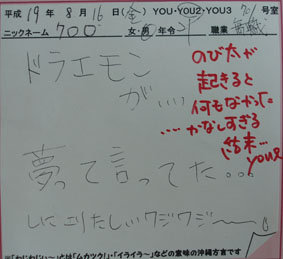 平成 19年 8月 16日(金) YOU・YOU2・YOU3 号室
ニックネーム ケロロ 女・男 年令 職業 無職
ドラえモン
が....
夢って言ってた。。。
しにこりたしぃワジワジ〜
のび太が
起きると
何もなかった
....かなしすぎる
結末...
you2
※「わじわじぃ〜」とは「ムカック!・「イライラ〜」などの意味の沖縄方言です